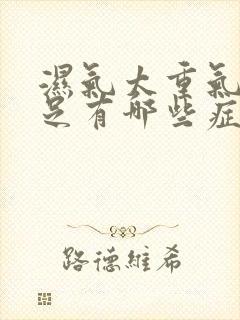 濕氣大重氣
足有哪些症
路德維希